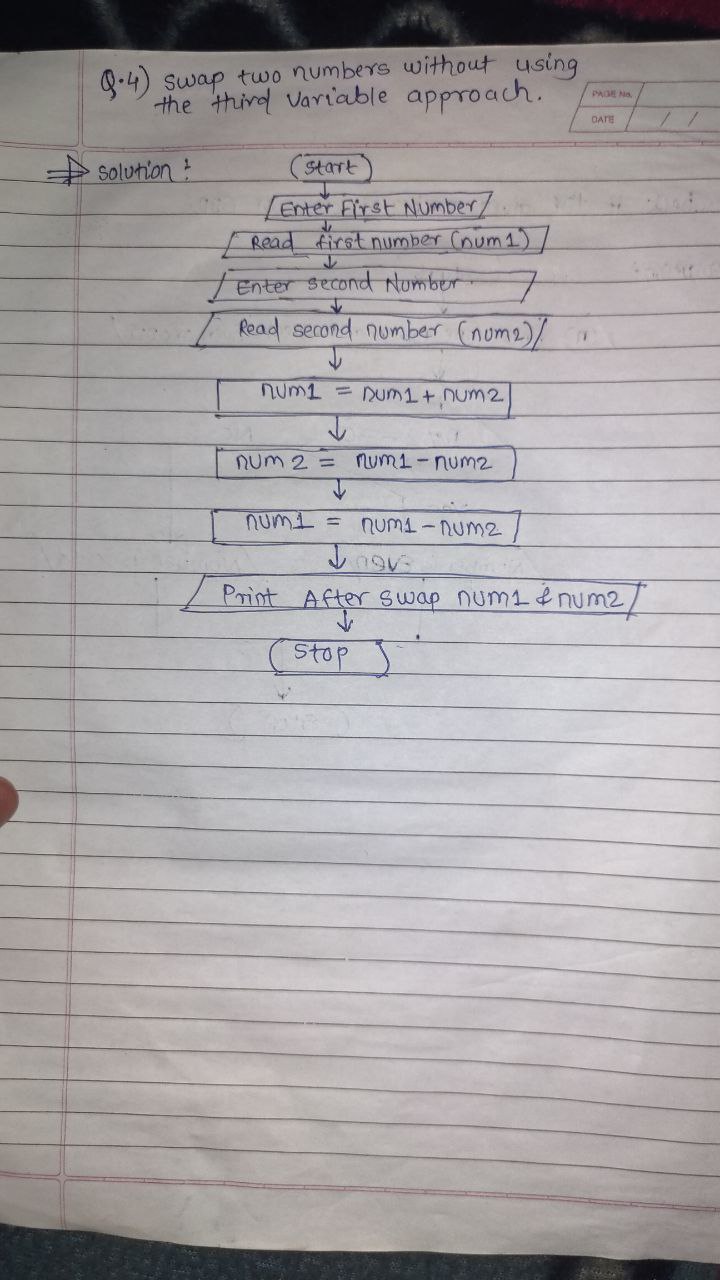 Q.4) swap two numbers without using
the third variable approach.
PAGE No.
DATE / /
⇒ solution :
(start)
Enter First Number
Read first number (num1)
Enter second Number
Read second number (num2)
num1 = num1 + num2
num2 = num1 - num2
num1 = num1 - num2
Print After swap num1 & num2
Stop